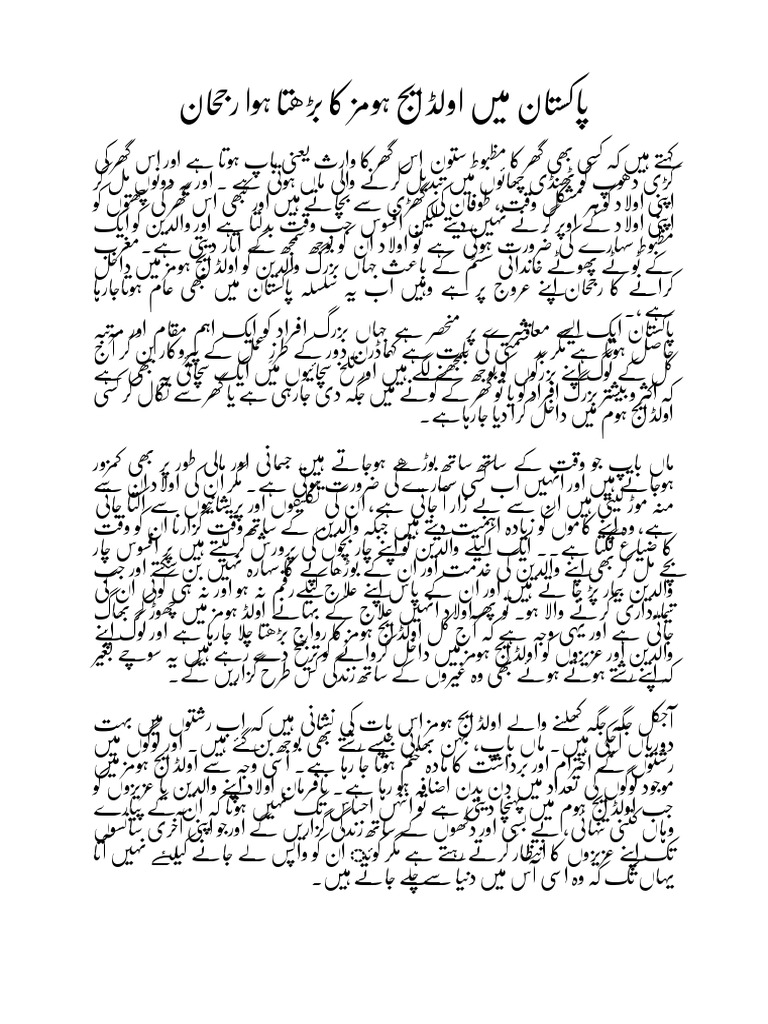 پاکستان میں اولڈ ایج ہومز کا بڑھتا ہوا رجحان
کہتے ہیں کہ کسی بھی گھر کا مظبوط ستون اس گھر کا وارث یعنی باپ ہوتا ہے اور اس گھر کی
کڑی دھوپ کو ٹھنڈی چھاٶں میں تبدیل کرنے والی ماں ہوتی ہے ۔ اور یہ دونوں مل کر
اپنی اولاد کو ہر مشکل وقت، طوفان کی گھڑی سے بچاتے ہیں اور کبھی اس گھر کی چھتوں کو
اپنی اولاد کے اوپر گرنے نہیں دیتے لیکن افسوس جب وقت بدلتا ہے اور والدین کو ایک
مظبوط سہارے کی ضرورت ہوتی ہے تو اولاد ان کو بوجھ سمجھ کے اتار دیتی ہے۔ مغرب
کے ٹوٹے پھوٹے خاندانی سسٹم کے باعث جہاں بزرگ والدین کو اولڈ ایج ہومز میں داخل
کرانے کا رجحان اپنے عروج پر ہے وہیں اب یہ سلسلہ پاکستان میں بھی عام ہوتاجارہا
ہے،۔
پاکستان ایک ایسے معاشرے پر منحصر ہے جہاں بزرگ افراد کو ایک اہم مقام اور مرتبہ
حاصل ہوتا ہے مگر بد قسمتی کی بات ہے کہ ماڈرن دور کے طرز عمل کے پیروکار بن کر آج
کل کے لوگ اپنے بزرگوں کو بوجھ سمجھنے لگے ہیں اور تلخ سچائیوں میں ایک سچائی یہ بھی ہے
کہ اکثر و بیشتر بزرگ افراد کو یا تو گھر کے کونے میں جگہ دی جارہی ہے یا گھر سے نکال کر کسی
اولڈ ایج ہوم میں داخل کرا دیا جارہا ہے۔
ماں باپ جو وقت کے ساتھ ساتھ بوڑھے ہوجاتے ہیں جسمانی اور مالی طور پر بھی کمزور
ہوجاتے ہیں اور انہیں اب کسی سہارے کی ضرورت ہوتی ہے۔ مگر ان کی اولاد ان سے
منہ موڑ لیتی ہیں ان سے بے زار آ جاتی ہے، ان کی تکلیفوں اور پریشانیوں سے اکتا جاتی
ہے، وہ اپنے کاموں کو زیادہ اہمیت دیتے ہیں جبکہ والدین کے ساتھ وقت گزارنا ان کو وقت
کا ضیاع لگتا ہے۔۔ ایک اکیلے والدین تو اپنے چار بچوں کی پرورش کر لیتے ہیں پر افسوس چار
بچے مل کر بھی اپنے والدین کی خدمت اور ان کے بوڑھاپے کا سہارہ نہیں بن سکتے اور جب
والدین بیمار پڑ جاتے ہیں اور ان کے پاس اپنے علاج کیلے رقم نہ ہو اور نہ ہی کوئی ان کی
تیمارداری کرنے والا ہو۔ تو پھر اولاد انہیں علاج کے بہانے اولڈ ہومز میں چھوڑ کر بھاگ
جاتی ہے اور یہی وجہ ہے کہ آج کل اولڈ ایج ہومز کا رواج بڑھتا چلا جارہا ہے اور لوگ اپنے
والدین اور عزیزوں کو اولڈ ایج ہومز میں داخل کروانے کو ترجیح دے رہے ہیں یہ سوچے بغیر
کہ اپنے رشتے ہوتے ہوئے بھی وہ غیروں کے ساتھ زندگی کس طرح گزاریں گے۔
آجکل جگہ جگہ کھلنے والے اولڈ ایج ہومز اس بات کی نشانی ہیں کہ اب رشتوں میں بہت
دوریاں آچکی ہیں۔ ماں باپ، بہن بھائی جیسے رشتے بھی بوجھ بن گئے ہیں۔ اور لوگوں میں
رشتوں کے احترام اور برداشت کا مادہ ختم ہوتا جا رہا ہے۔ اسی وجہ سے اولڈ ایج ہومز میں
موجود لوگوں کی تعداد میں دن بدن اضافہ ہو رہا ہے۔ نافرمان اولاد اپنے والدین یا عزیزوں کو
جب اولڈ ایج ہوم میں پہنچا دیتی ہے تو انہیں احساس تک نہیں ہوتا کہ ان کے پیارے
وہاں کتنی تنہائی، بے بسی اور دکھوں کے ساتھ زندگی گزاریں گے اور جو اپنی آخری سانسوں
تک اپنے عزیزوں کا انتظار کرتے رہتے ہے مگر کوئ ان کو واپس لے جانے کیلئے نہیں آتا
یہاں تک کہ وہ اسی آس میں دنیا سے چلے جاتے ہیں۔